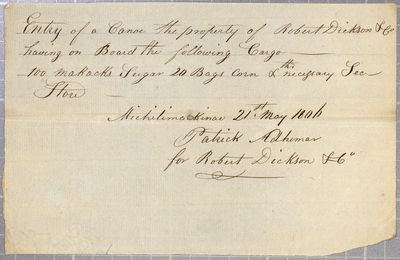 Entry of a Canoe the property of Robert Dickson & Co
having on Board the following Cargo
100 makacks Sugar 20 Bags Corn & necessary Sea
Store
Michilimackinac 21st May 1806
Patrick Adhemar
for Robert Dickson & Co